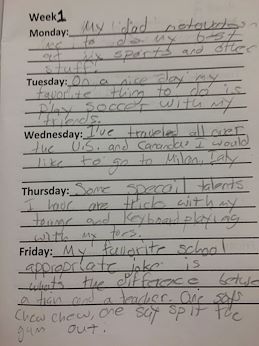 Week 1
Monday: My dad
me to do my best
at my sports and other
stuff.
Tuesday: On a nice day my
favorite thing to do is
play soccer with my
friends.
Wednesday: I've traveled all over
the U.S. and Canada I would
like to go to Milan, Italy
Thursday: Some specail talents
I have are tricks with my
tounge and keyboard playing
with my toes.
Friday: My favorite school
appropriate joke is
whats the difference betwe
a train and a teacher. One says
chew chew, one say spit the
gum out.